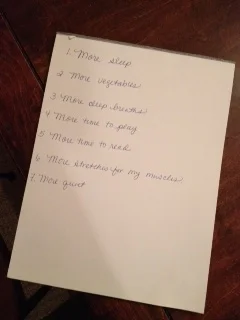 1. More sleep
2. More vegetables
3. More deep breaths
4. More time to play
5. More time to read
6. More stretches for my muscles
7. More quiet